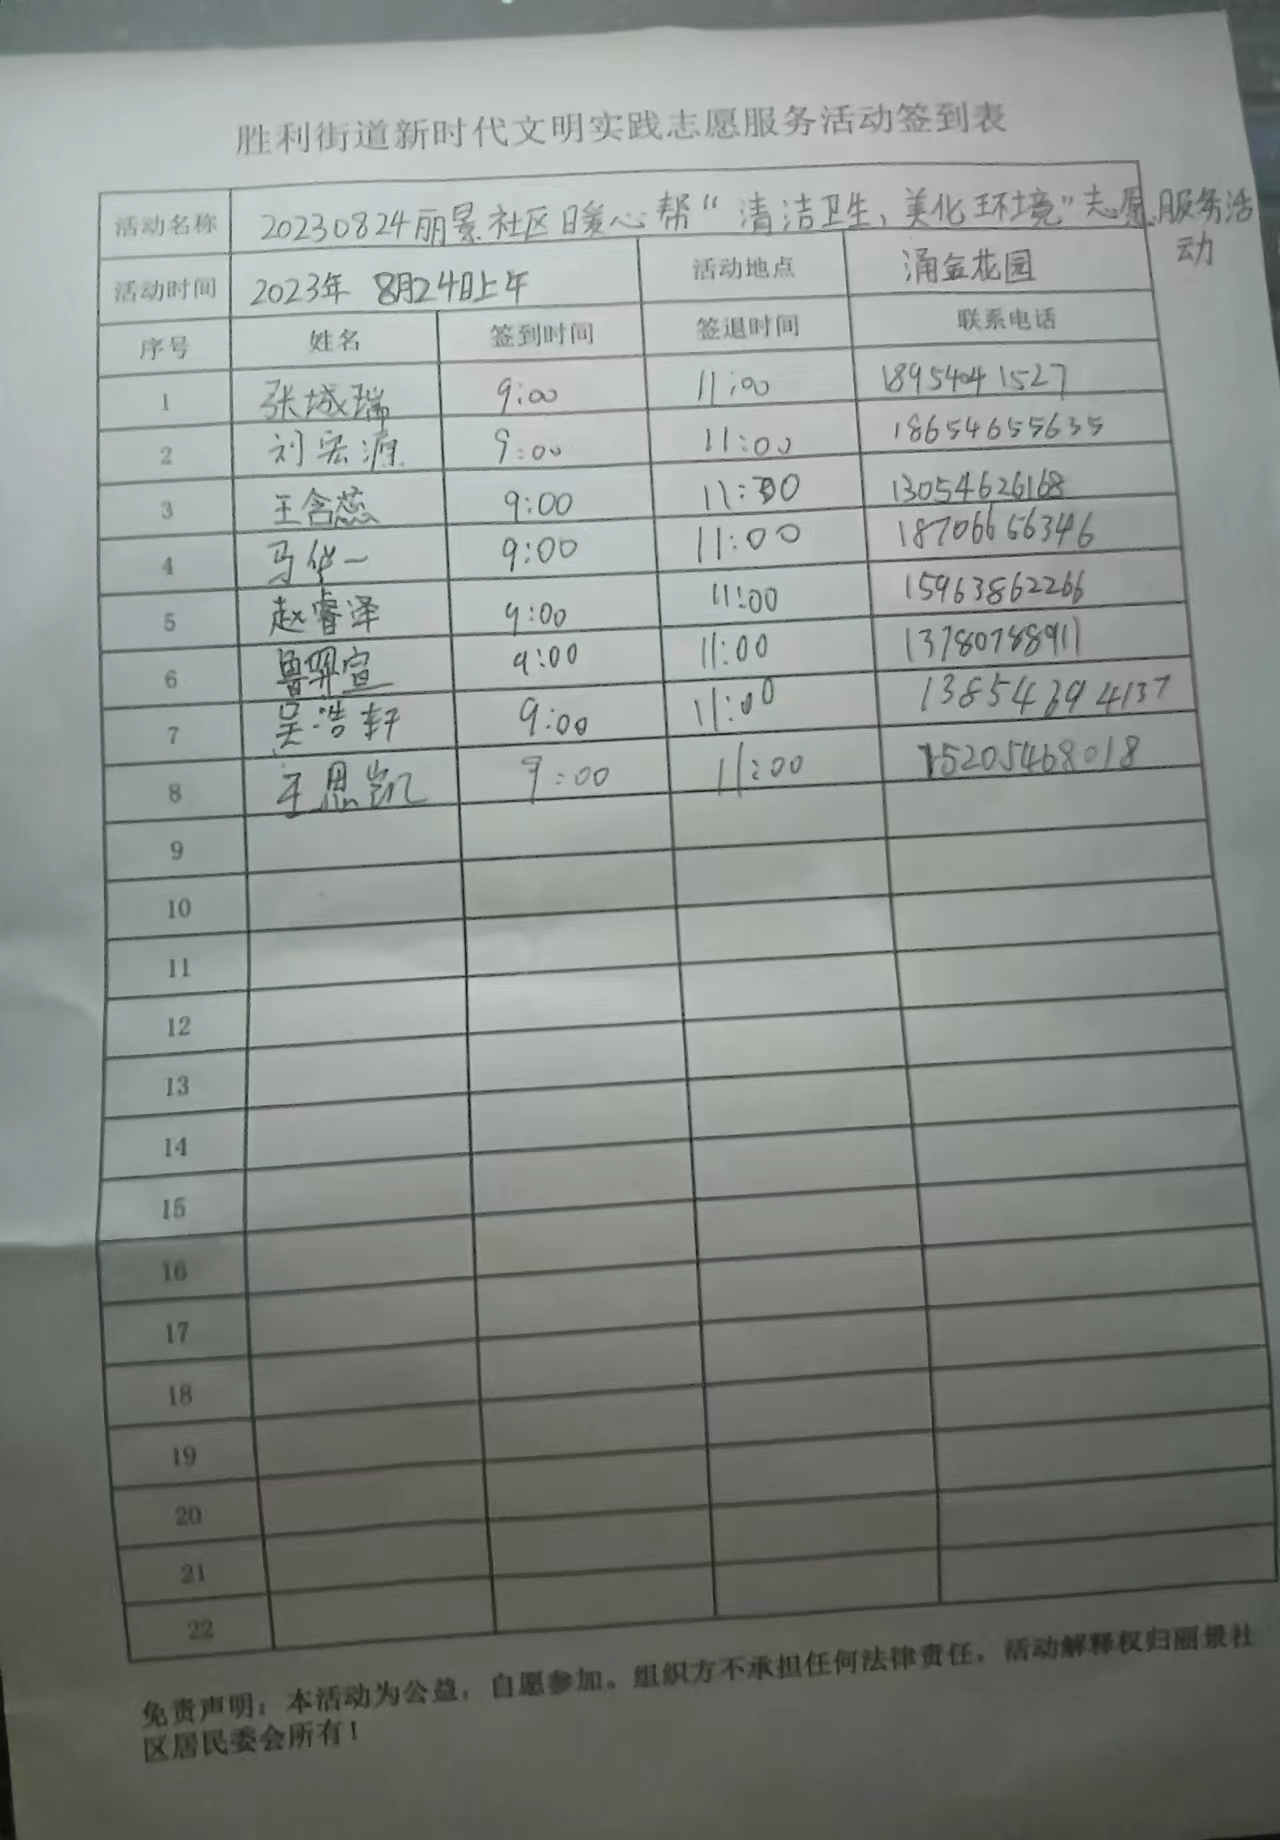 胜利街道新时代文明实践志愿服务活动签到表
活动名称 20230824丽景社区暖心帮“清洁卫生、美化环境”志愿服务活
动
活动时间 2023年 8月24日上午 活动地点 涌金花园
序号 姓名 签到时间 签退时间 联系电话
1 张城瑞 9:00 11:00 18954041527
2 刘宏源 9:00 11:00 18654655635
3 王含蕊 9:00 11:00 13054626168
4 马华一 9:00 11:00 18706656346
5 赵睿泽 9:00 11:00 15963862266
6 9:00 11:00 13780788911
7 吴浩轩 9:00 11:00 13854694137
8 王思凯 9:00 11:00 15205468018
9
10
11
12
13
14
15
16
17
18
19
20
21
22
免责声明：本活动为公益，自愿参加。组织方不承担任何法律责任，活动解释权归丽景社
区居民委会所有！